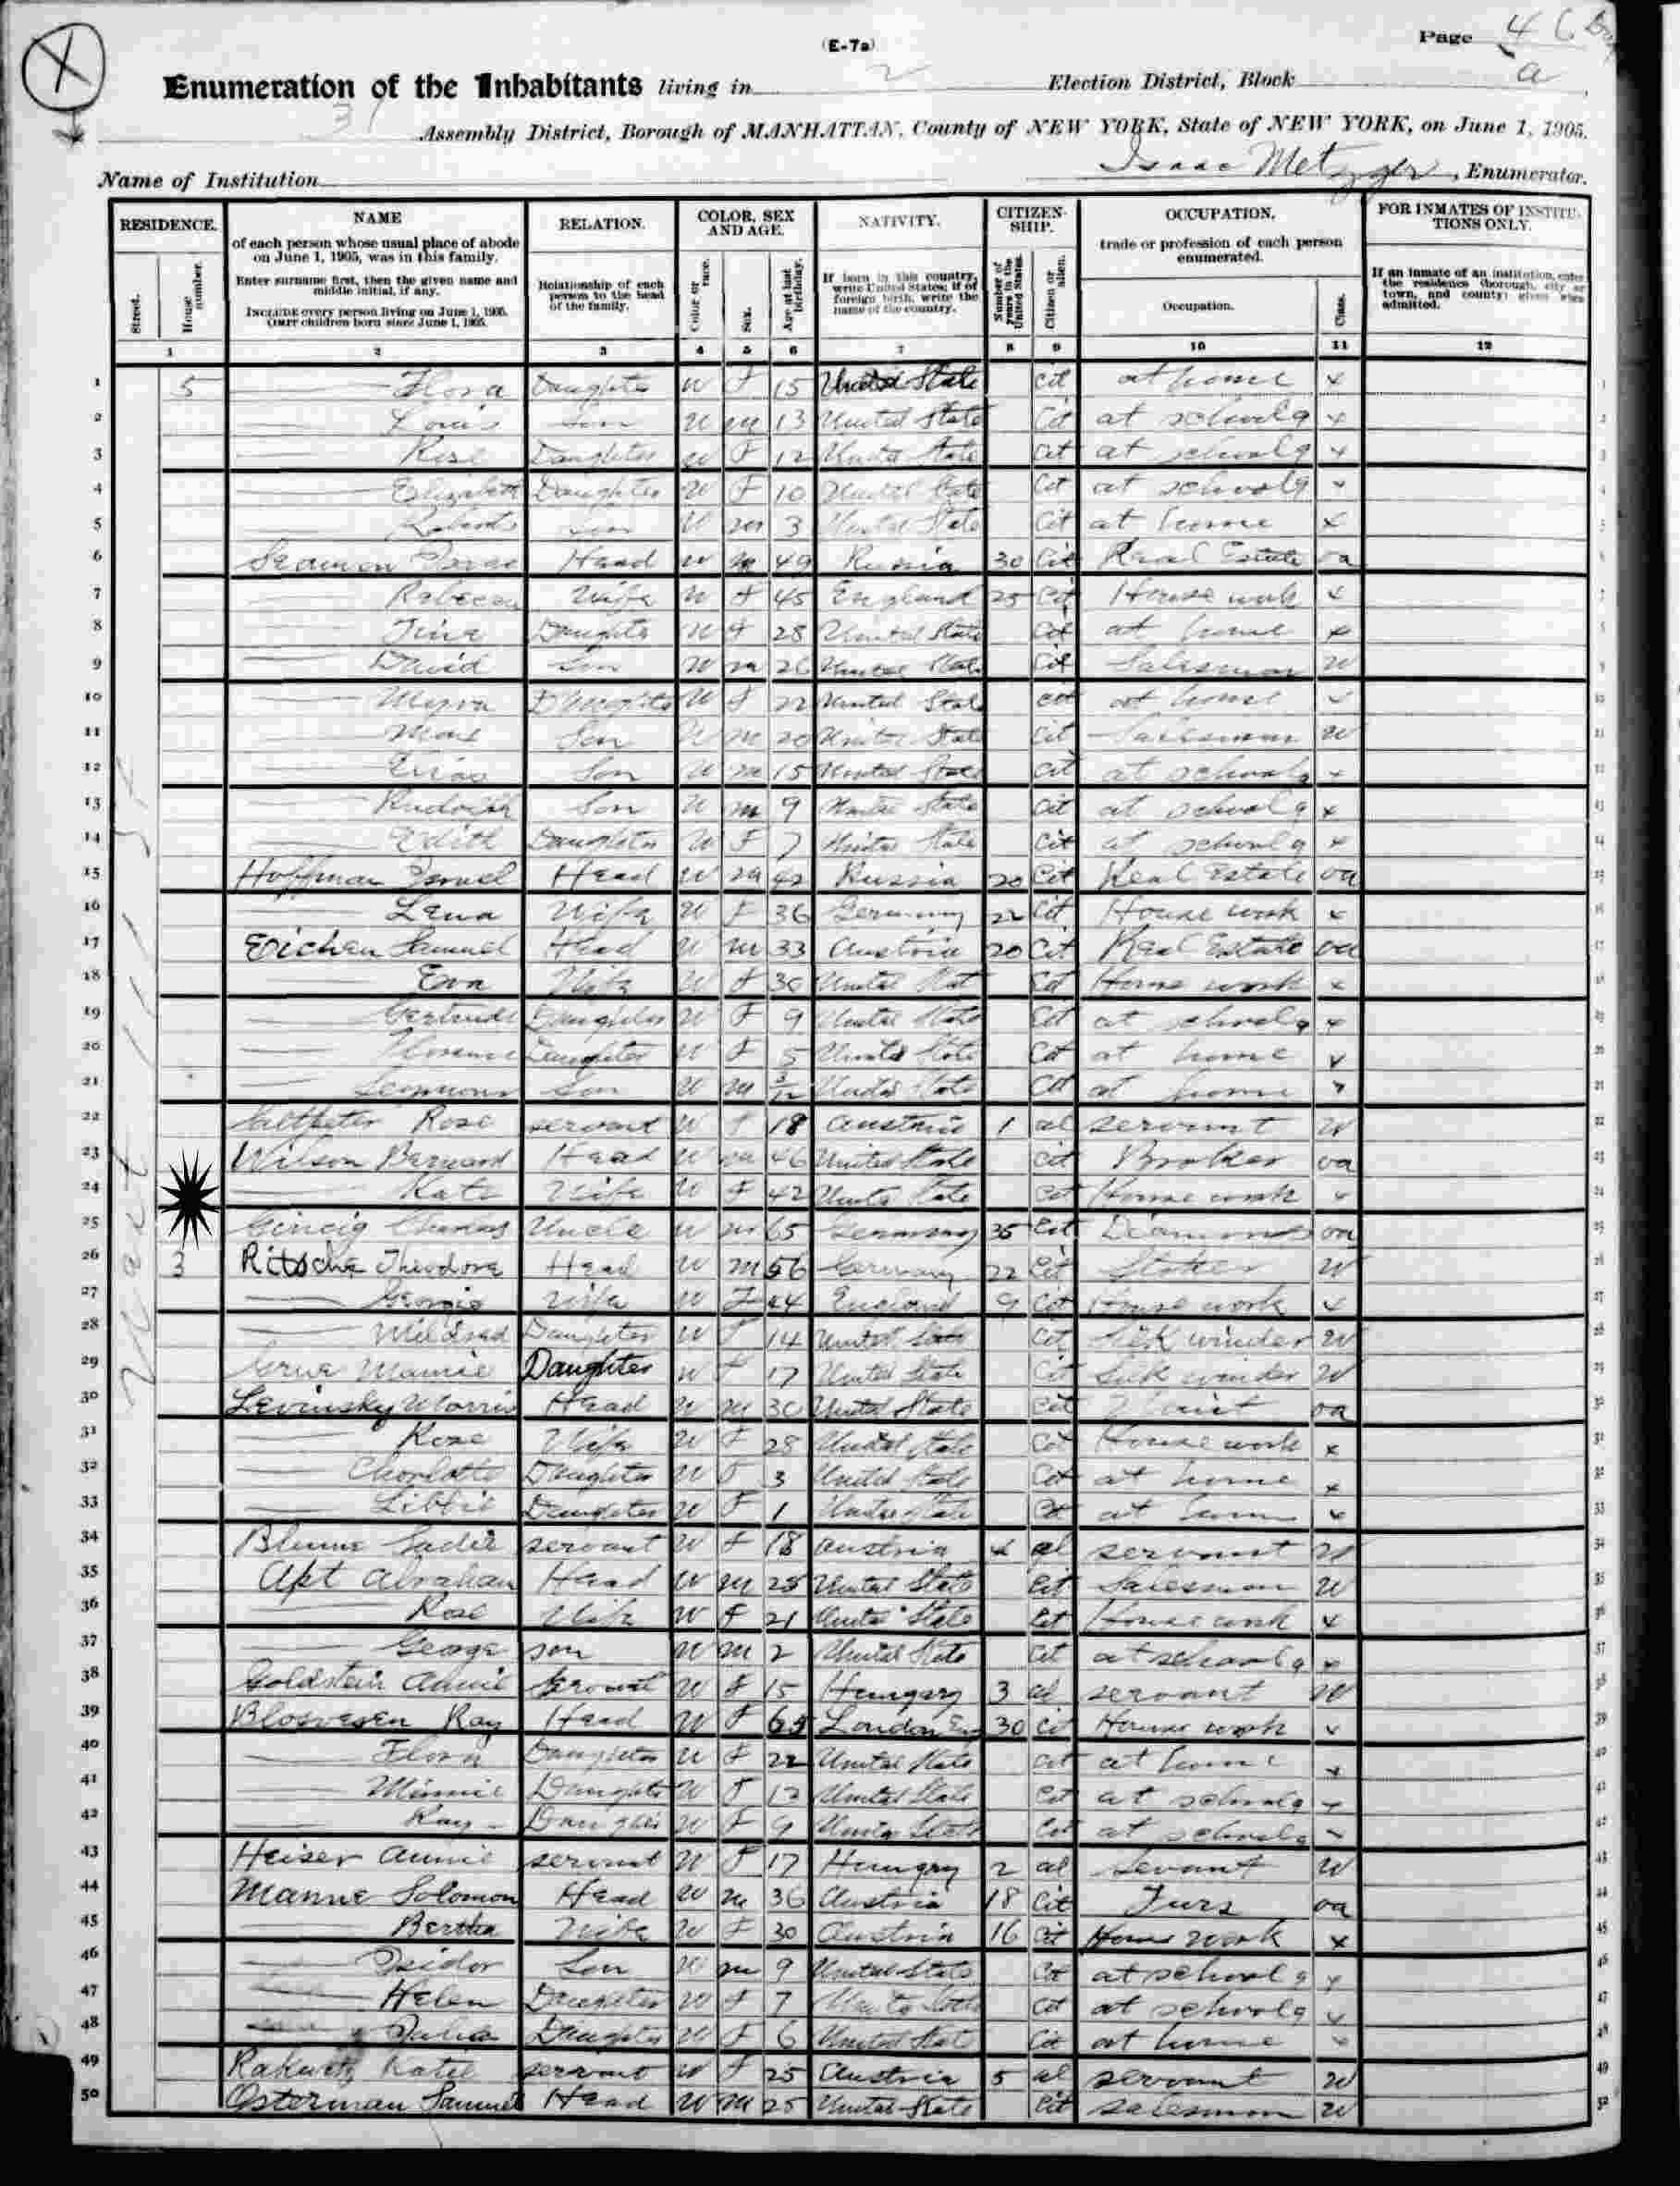 (E-7a)
Page 46
Enumeration of the Inhabitants living in 2 Election District, Block a
31 Assembly District, Borough of MANHATTAN, County of NEW YORK, State of NEW YORK, on June 1, 1905.
Name of Institution Isaac Metzger, Enumerator.
RESIDENCE. NAME RELATION. COLOR, SEX AND AGE. NATIVITY. CITIZEN-SHIP. OCCUPATION, FOR INMATES OF INSTITUTIONS ONLY.
of each person whose usual place of abode on June 1, 1905, was in this family.
Enter surname first, then the given name and middle initial, if any.
Include every person living on June 1, 1905. Omit children born since June 1, 1905.
Relationship of each person to the head of the family.
If born in this country, write United States; if of foreign birth, write the name of the country.
trade or profession of each person enumerated.
If an inmate of an institution, enter the residence (borough, city or town, and county) given when admitted.
Street. House number. Color or race. Sex. Age at last birthday. Number of years in the United States. Citizen or alien. Occupation. Class.
1 2 3 4 5 6 7 8 9 10 11 12
West
1 5 Flora Daughter W F 15 United State Cit at home x
2 Louis Son W M 13 United State Cit at school g x
3 Rose Daughter W F 12 United State Cit at school g x
4 Elizabeth Daughter W F 10 United State Cit at school g x
5 Son W M 3 United State Cit at home x
6 Head W M 49 Russia 30 Cit Real Estate oa
7 Rebecca Wife W F 45 England 25 Cit House work x
8 Daughter W F 28 United State Cit at home x
9 David Son W M 26 United State Cit Salesman W
10 Myra Daughter W F 22 United State Cit at home x
11 Max Son W M 20 United State Cit Salesman W
12 Son W M 15 United State Cit at school g x
13 Rudolph Son W M 9 United State Cit at school g x
14 Edith Daughter W F 7 United State Cit at school g x
15 Hoffman Head W M 42 Russia 20 Cit Real Estate oa
16 Lena Wife W F 36 Germany 22 Cit House work x
17 Samuel Head W M 33 Austria 20 Cit Real Estate oa
18 Eva Wife W F 30 United Stat Cit House work x
19 Gertrude Daughter W F 9 United State Cit at school g x
20 Florence Daughter W F 5 United State Cit at home x
21 Son W M 3/12 United State Cit at home x
22 Rose servant W F 18 Austria 1 al servant W
23 Wilson Bernard Head W M 46 United State Cit Broker oa
24 Kate Wife W F 42 United State Cit House work x
25 Charles Uncle W M 65 Germany 35 Cit Diamonds oa
26 3 Ritsche Theodore Head W M 56 Germany 22 Cit W
27 Georgie Wife W F 44 England 9 Cit House work x
28 Mildred Daughter W F 14 United State Cit Silk winder W
29 Mamie Daughter W F 17 United State Cit Silk winder W
30 Levinsky Morris Head W M 30 United State Cit oa
31 Rose Wife W F 28 United State Cit House work x
32 Charlotte Daughter W F 3 United State Cit at home x
33 Libbie Daughter W F 1 United State Cit at home x
34 Blume Sadie servant W F 18 Austria 4 al servant W
35 Apt Abraham Head W M 25 United State Cit Salesman W
36 Rose Wife W F 21 United State Cit House work x
37 George son W M 2 United State Cit at school g x
38 Goldstein Annie Servant W F 15 Hungary 3 al servant W
39 Ray Head W F 65 London Eng 30 Cit House work x
40 Flora Daughter W F 22 United State Cit at home x
41 Minnie Daughter W F 12 United State Cit at school g x
42 Ray Daughter W F 9 United State Cit at school g x
43 Heiser Annie servant W F 17 Hungry 2 al Sevant W
44 Manne Solomon Head W M 36 Austria 18 Cit Furs oa
45 Bertha Wife W F 30 Austria 16 Cit House work x
46 Isidor Son W M 9 United State Cit at school g x
47 Helen Daughter W F 7 United State Cit at school g x
48 Daughter W F 6 United State Cit at home x
49 Katie servant W F 25 Austria 5 al servant W
50 Osterman Samuel Head W M 25 United State Cit salesman W